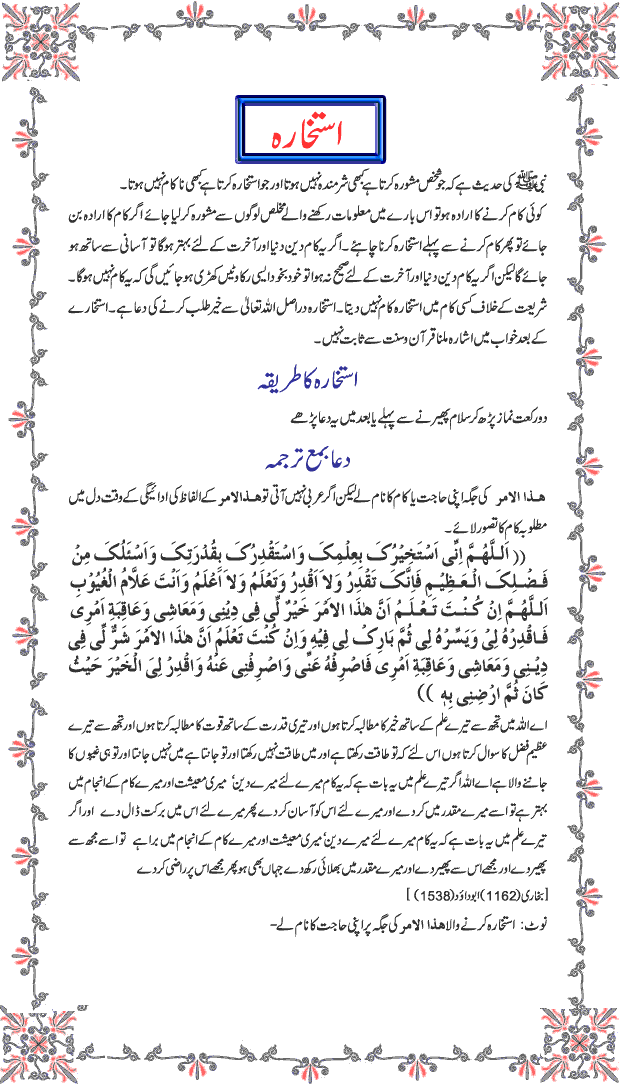 استخارہ
نبی ﷺ کی حدیث ہے کہ جو شخص مشورہ کرتا ہے کبھی شرمندہ نہیں ہوتا اور جو استخارہ کرتا ہے کبھی ناکام نہیں ہوتا۔
کوئی کام کرنے کا ارادہ ہو تو اس بارے میں معلومات رکھنے والے مخلص لوگوں سے مشورہ کر لیا جائے اگر کام کا ارادہ بن
جائے تو پھر کام کرنے سے پہلے استخارہ کرنا چاہئے۔ اگر یہ کام دین دنیا اور آخرت کے لئے بہتر ہوگا تو آسانی سے ساتھ ہو
جائے گا لیکن اگر یہ کام دین دنیا اور آخرت کے لئے صحیح نہ ہوا تو خود بخود ایسی رکاوٹیں کھڑی ہو جائیں گی کہ یہ کام نہیں ہوگا۔
شریعت کے خلاف کسی کام میں استخارہ کام نہیں دیتا۔ استخارہ دراصل اللہ تعالیٰ سے خیر طلب کرنے کی دعا ہے۔ استخارے
کے بعد خواب میں اشارہ ملنا قرآن و سنت سے ثابت نہیں۔
استخارہ کا طریقہ
دو رکعت نماز پڑھ کر سلام پھیرنے سے پہلے یا بعد میں یہ دعا پڑھے
دعا بمع ترجمہ
ھذا الامر کی جگہ اپنی حاجت یا کام کا نام لے لیکن اگر عربی نہیں آتی تو ھذا الامر کے الفاظ کی ادائیگی کے وقت دل میں
مطلوبہ کام کا تصور لائے۔
(( اَللّٰهُمَّ اِنِّی اَسْتَخِیْرُکَ بِعِلْمِکَ وَاسْتَقْدِرُکَ بِقُدْرَتِکَ وَاَسْئَلُکَ مِنْ
فَضْلِکَ الْعَظِیْمِ فَاِنَّکَ تَقْدِرُ وَلَا اَقْدِرُ وَتَعْلَمُ وَلَا اَعْلَمُ وَاَنْتَ عَلَّامُ الْغُیُوْبِ
اَللّٰهُمَّ اِنْ کُنْتَ تَعْلَمُ اَنَّ هٰذَا الاَمْرَ خَیْرٌ لِّی فِی دِیْنِی وَمَعَاشِی وَعَاقِبَةِ اَمْرِی
فَاقْدِرْهُ لِیْ وَیَسِّرْهُ لِی ثُمَّ بَارِکْ لِی فِیْهِ وَاِنْ کُنْتَ تَعْلَمُ اَنَّ هٰذَا الاَمْرَ شَرٌّ لِّی فِی
دِیْنِی وَمَعَاشِی وَعَاقِبَةِ اَمْرِی فَاصْرِفْهُ عَنِّی وَاصْرِفْنِی عَنْهُ وَاقْدِرْ لِیَ الْخَیْرَ حَیْثُ
کَانَ ثُمَّ ارْضِنِی بِهٖ ))
اے اللہ میں تجھ سے تیرے علم کے ساتھ خیر کا مطالبہ کرتا ہوں اور تیری قدرت کے ساتھ قوت کا مطالبہ کرتا ہوں اور تجھ سے تیرے
عظیم فضل کا سوال کرتا ہوں اس لئے کہ تو طاقت رکھتا ہے اور میں طاقت نہیں رکھتا اور تو جانتا ہے میں نہیں جانتا اور تو ہی غیبوں کا
جاننے والا ہے اے اللہ اگر تیرے علم میں یہ بات ہے کہ یہ کام میرے لئے میرے دین، میری معیشت اور میرے کام کے انجام میں
بہتر ہے تو اسے میرے مقدر میں کر دے اور میرے لئے اس کو آسان کر دے پھر میرے لئے اس میں برکت ڈال دے اور اگر
تیرے علم میں یہ بات ہے کہ یہ کام میرے لئے میرے دین، میری معیشت اور میرے کام کے انجام میں برا ہے تو اسے مجھ سے
پھیر دے اور مجھے اس سے پھیر دے اور میرے مقدر میں بھلائی رکھ دے جہاں بھی ہو پھر مجھے اس پر راضی کر دے
[بخاری (1162) ابوداؤد (1538) ]
نوٹ: استخارہ کرنے والا ھذا الامر کی جگہ پر اپنی حاجت کا نام لے-